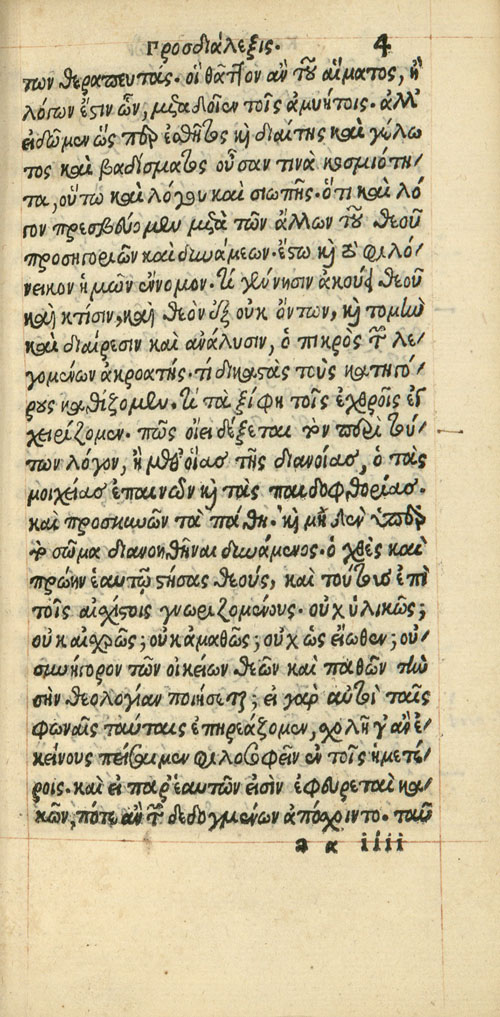 Προσδιάλεξις. 4
των θεραπευτάς. οἳ θᾶττον ἂν τοῦ αἵματος, ἢ
λόγων ἔστιν ὧν, μεταδοῖεν τοῖς ἀμυήτοις. ἀλλ'
εἰδῶμεν ὥσπερ ἐσθῆτος καὶ διαίτης καὶ γέλω
τος καὶ βαδίσματος οὖσαν τινὰ κοσμιότη/
τα, οὕτω καὶ λόγου καὶ σιωπῆς. ὅτι καὶ λό
γον πρεσβεύομεν μετὰ τῶν ἄλλων τοῦ θεοῦ
προσηγοριῶν καὶ δυνάμεων. ἔστω καὶ τὸ φιλό/
νεικον ἡμῶν ἔννομον. τί γέννησιν ἀκούει θεοῦ
καὶ κτίσιν, καὶ θεὸν ἐξ οὐκ ὄντων, καὶ τομὴν
καὶ διαίρεσιν καὶ ἀνάλυσιν, ὁ πικρὸς τῶν λε/
γομένων ἀκροατής. τί δικαστὰς τοὺς κατηγό/
ρους καθίζομεν. τί τὰ ξίφη τοῖς ἐχθροῖς ἐγ
χειρίζομεν. πῶς οἴει δέξεται τὸν περὶ τού/
των λόγον, ἢ μεθ' οἵας τῆς διανοίας, ὁ τὰς
μοιχείας ἐπαινῶν καὶ τὰς παιδοφθορίας.
καὶ προσκυνῶν τὰ πάθη. καὶ μηδὲν ὑπὲρ
τὸ σῶμα διανοηθῆναι δυνάμενος. ὁ χθὲς καὶ
πρώην ἑαυτῷ στήσας θεούς, καὶ τούτους ἐπὶ
τοῖς αἰσχίστοις γνωριζομένους. οὐχ ὑλικῶς;
οὐκ αἰσχρῶς; οὐκ ἀμαθῶς; οὐχ ὡς εἴωθεν; οὐ/
συνήγορον τῶν οἰκείων θεῶν καὶ παθῶν τὴν
σὴν θεολογίαν ποιήσεται; εἰ γὰρ αὐτοὶ ταῖς
φωναῖς ταύταις ἐπηρεάζομεν, σχολῇ γ' ἂν ἐ/
κείνους πείσαιμεν φιλοσοφεῖν ἐν τοῖς ἡμετέ/
ροις. καὶ εἰ παρ' ἑαυτῶν εἰσὶν ἐφευρεταὶ κα/
κῶν, πότε ἂν τῶν δεδογμένων ἀπόσχοιντο. ταῦ
a α iiii